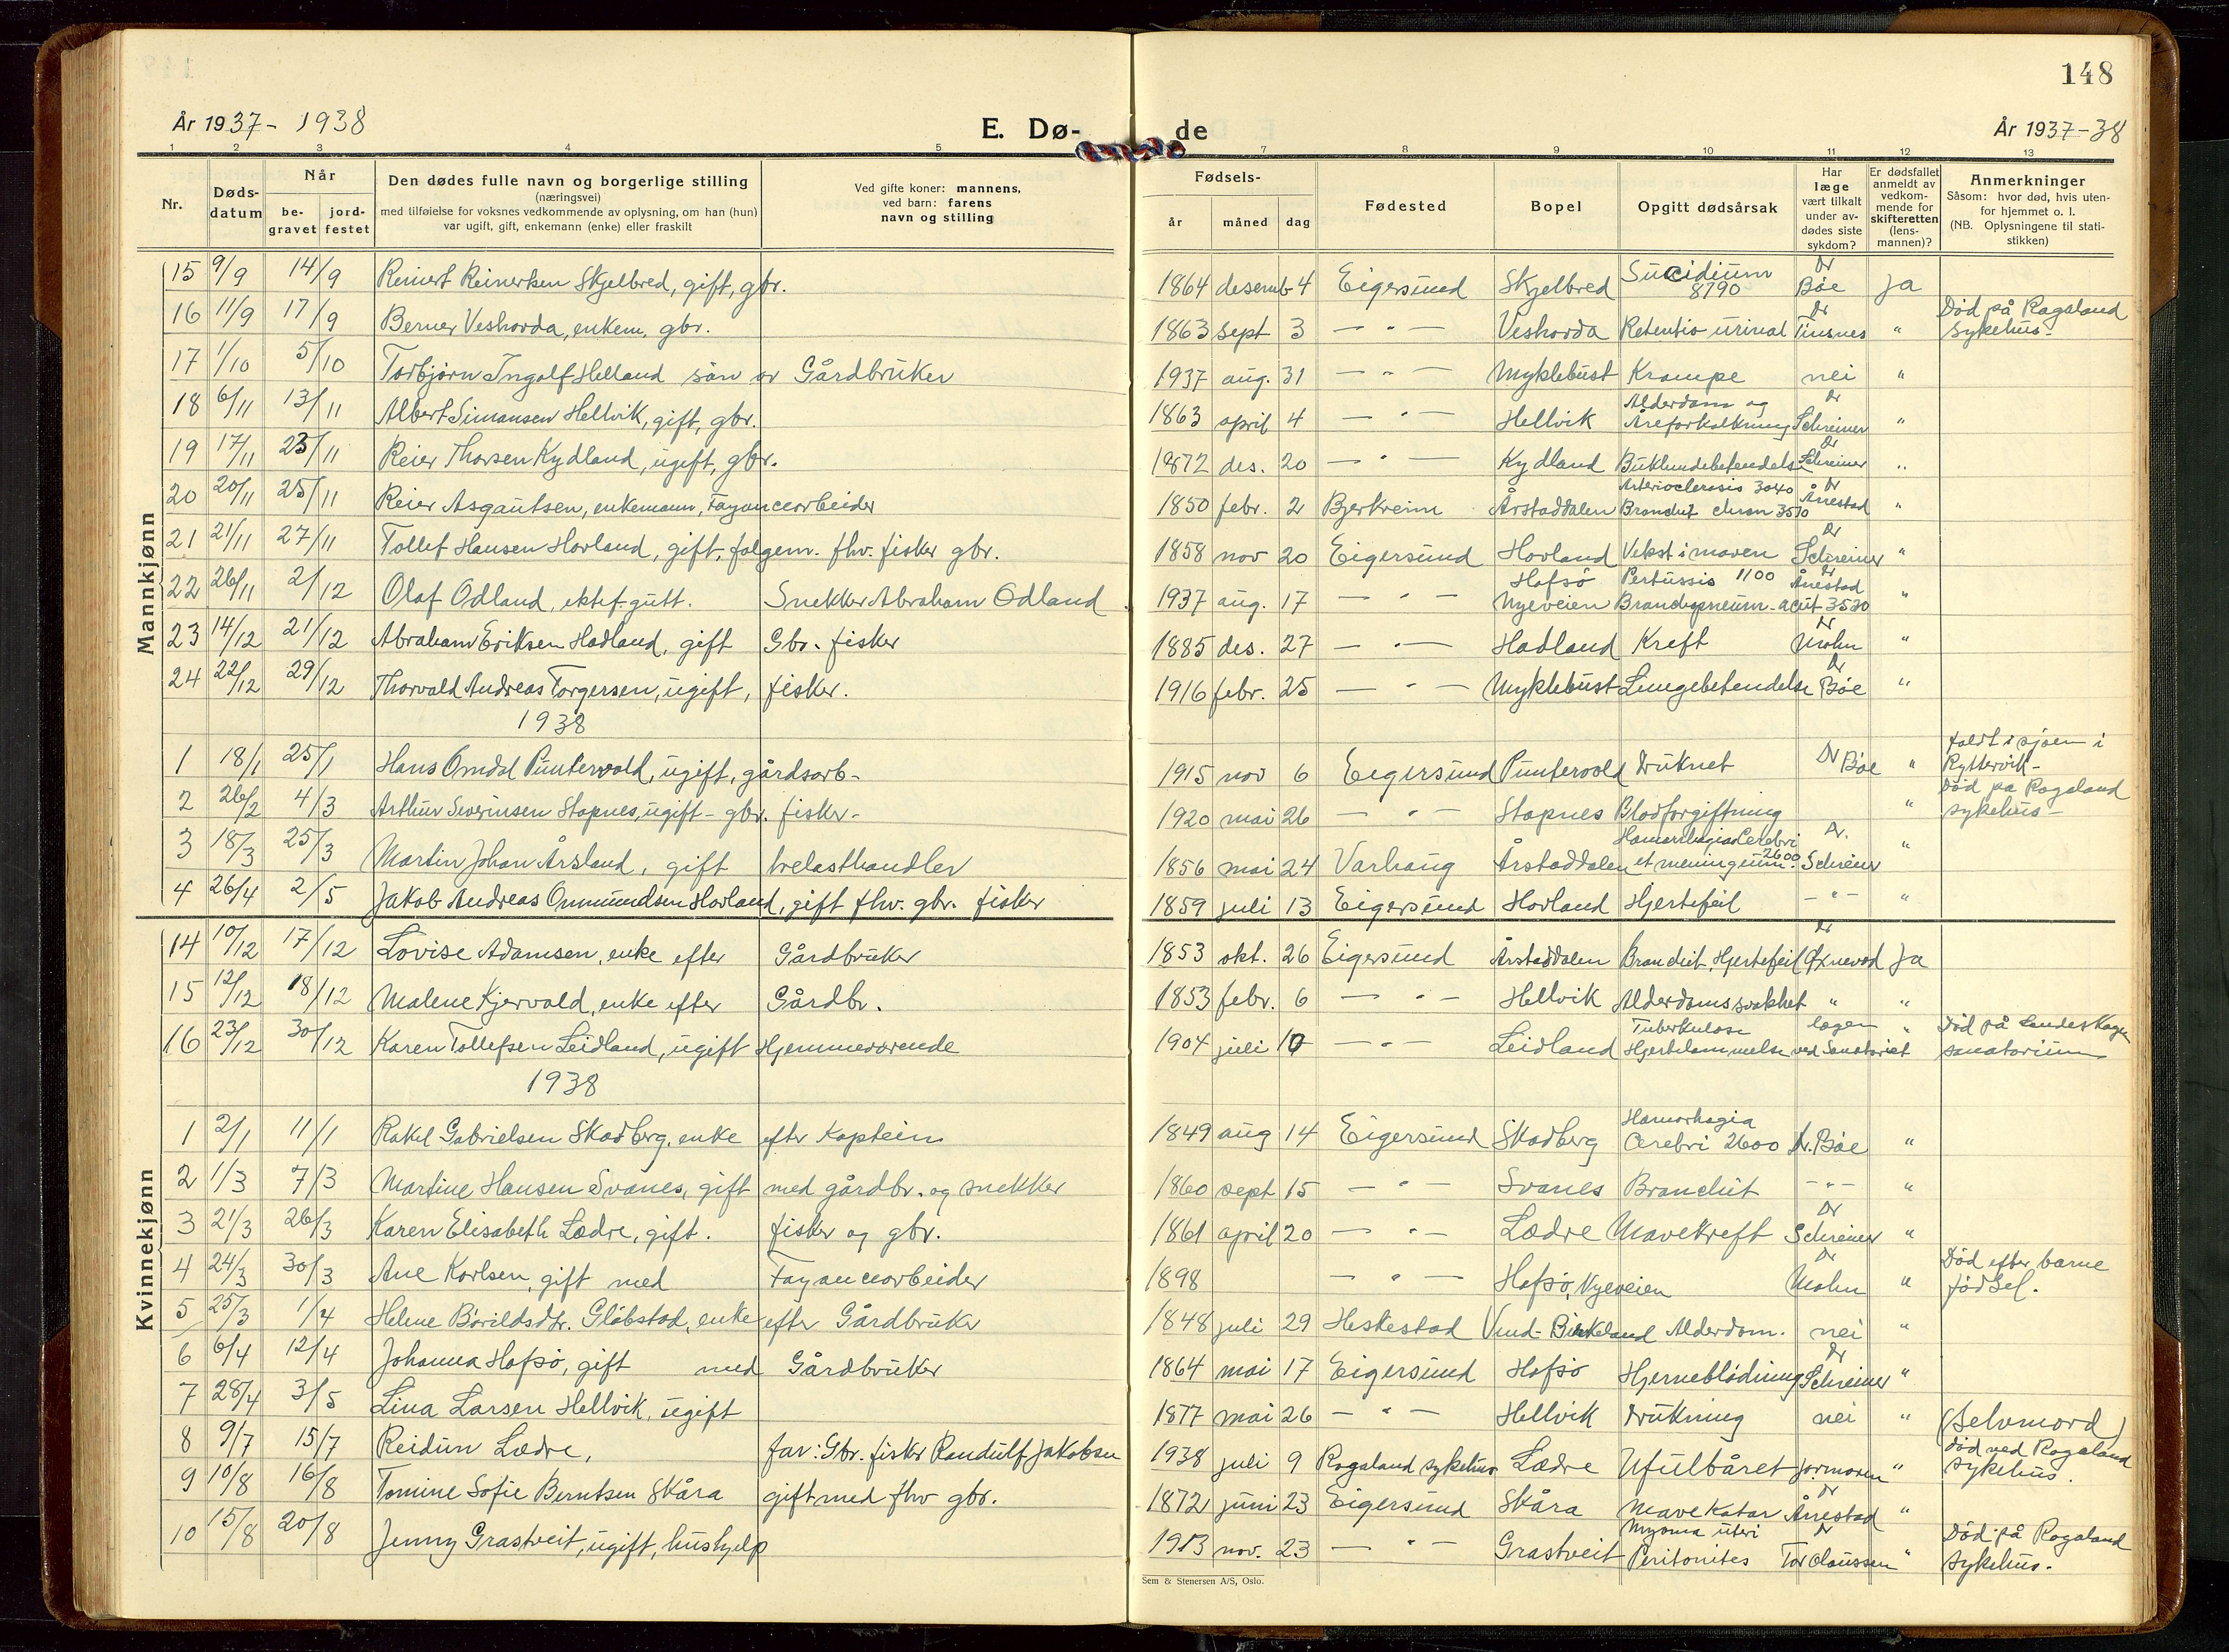 148
År 1937- 1938
E. Dø-
de
År 1937-38
1 2 3 4 5 7 8 9 10 11 12 13
Nr.
Døds-
datum
Når
be-
gravet
jord-
festet
Den dødes fulle navn og borgerlige stilling
(næringsvei)
med tilføielse for voksnes vedkommende av oplysning, om han (hun)
var ugift, gift, enkemann (enke) eller fraskilt
Ved gifte koner: mannens,
ved barn: farens
navn og stilling
Fødsels-
år måned dag
Fødested
Bopel
Opgitt dødsårsak
Har
læge
vært tilkalt
under av-
dødes siste
sykdom?
Er dødsfallet
anmeldt av
vedkom-
mende for
skifteretten
(lens-
mannen)?
Anmerkninger
Såsom: hvor død, hvis uten-
for hjemmet o. l.
(NB. Oplysningene til stati-
stikken)
Mannkjønn
15 9/9 14/9 Reinert Reinertsen Skjelbred, gift, gbr. 1864 desemb 4 Eigersund Skjelbred Sucidium 8790 Dr Bøe Ja
16 11/9 17/9 Berner Veshovda, enkem, gbr. 1863 sept 3 — " — Veshovda Retentio urinal Dr Tinsnes " Død på Rogaland sykehus-
17 1/10 5/10 Torbjørn Ingolf Helland sön av Gårdbruker 1937 aug. 31 — " — Myklebust Krampe nei "
18 6/11 13/11 Albert Simonsen Hellvik, gift, gbr. 1863 april 4 — " — Hellvik Alderdom og Åreforkalkning Dr Schreiner "
19 17/11 23/11 Reier Thorsen Kydland, ugift, gbr. 1872 des. 20 — " — Kydland Bukhindebetendelse Dr Schreiner "
20 20/11 25/11 Reier Asgautsen, enkemann, Fayancearbeider 1850 febr. 2 Bjerkreim Årstaddalen Arterioclerosis 3040 Bronchit chron 3510 Dr Årrestad "
21 21/11 27/11 Tollef Hansen Hovland, gift, folgem. fhv. fisker gbr. 1858 nov 20 Eigersund Hovland Vekst i maven Dr Schreiner "
22 26/11 2/12 Olaf Odland, ektef. gutt. Snekker Abraham Odland 1937 aug. 17 — " — Hafsö Nyeveien Pertussis 1100 Bronchopneum-acut 3520 Dr Årrestad "
23 14/12 21/12 Abraham Eriksen Hadland, gift Gbr. fisker 1885 des. 27 — " — Hadland Kreft Dr Mohn "
24 22/12 29/12 Thorvald Andreas Torgersen, ugift, fisker. 1916 febr. 25 — " — Myklebust Lungebetendelse Dr Bøe "
1938
1 18/1 25/1 Hans Omdal Puntervold, ugift, gårdsarb- 1915 nov 6 Eigersund Puntervold Druknet Dr Bøe " faldt i sjøen i Ryttervik-
2 26/2 4/3 Arthur Severinsen Stapnes, ugift - gbr. fisker- 1920 mai 26 — " — Stapnes Blodforgiftning " Død på Rogaland sykehus-
3 18/3 25/3 Martin Johan Årsland, gift trelasthandler 1856 mai 24 Varhaug Årstaddalen Hamorrhagia Cerebri et meningeum. 2600 Dr. Schreiner "
4 26/4 2/5 Jakob Andreas Ommundsen Hovland, gift fhv. gbr. fisker 1859 juli 13 Eigersund Hovland Hjertefeil - " - "
Kvinnekjønn
14 10/12 17/12 Lovise Adamsen, enke efter Gårdbruker 1853 okt. 26 Eigersund Årstaddalen Bronchit, Hjertefeil Dr Øxnevad Ja
15 12/12 18/12 Malene Kjervold, enke efter Gårdbr. 1853 febr. 6 — " — Hellvik Alderdomssvakhet " "
16 23/12 30/12 Karen Tollefsen Leidland, ugift Hjemmeværende 1904 juli 10 — " — Leidland Tuberkulose Hjertelammelse lægen ved Sanatoriet " Död på Sandeskogen sanatorium
1938
1 2/1 11/1 Rakel Gabrielsen Skadberg, enke efter Kaptein 1849 aug 14 Eigersund Skadberg Hamorhagia Cerebri 2600 Dr. Bøe "
2 1/3 7/3 Martine Hansen Svanes, gift med gårdbr. og snekker 1860 sept 15 — " — Svanes Bronchit - " - "
3 21/3 26/3 Karen Elisabeth Lædre, gift. fisker og gbr. 1861 april 20 — " — Lædre Mavekreft Dr Schreiner "
4 24/3 30/3 Ane Karlsen, gift med Fayancearbeider 1898 — " — Hafsö, Nyeveien Dr Mohn " Død efter barne födsel.
5 25/3 1/4 Helene Bårildsdtr. Glåbstad, enke efter Gårdbruker 1848 juli 29 Heskestad Vind-Birkeland Alderdom. nei "
6 6/4 12/4 Johanna Hafsö, gift med Gårdbruker 1864 mai 17 Eigersund Hafsö Hjerneblödning Dr Schreiner "
7 28/4 3/5 Lina Larsen Hellvik, ugift 1877 mai 26 — " — Hellvik Drukning nei " (Selvmord)
8 9/7 15/7 Reidun Lædre, far: Gbr. fisker Randulf Jakobsen 1938 juli 9 Rogaland sykehus Lædre Ufulbåret jormoren " Död ved Rogaland sykehus.
9 10/8 16/8 Tomine Sofie Berntsen Skåra gift med fhv gbr. 1872 juni 23 Eigersund Skåra Mave Katar Dr Årrestad "
10 15/8 20/8 Jenny Grastveit, ugift, hushjelp 1913 nov. 23 — " — Grastveit Myoma uteri Peritonites Dr Tor Claussen " Död på Rogaland sykehus.
Sem & Stenersen A/S, Oslo.